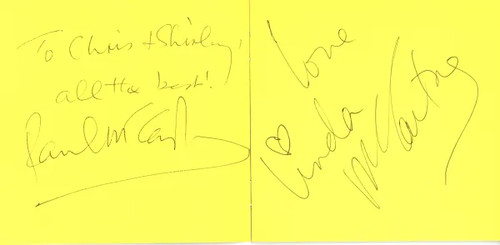 To Chris + Shirley,
all the best!
Paul McCartney
love
Linda
McCartney